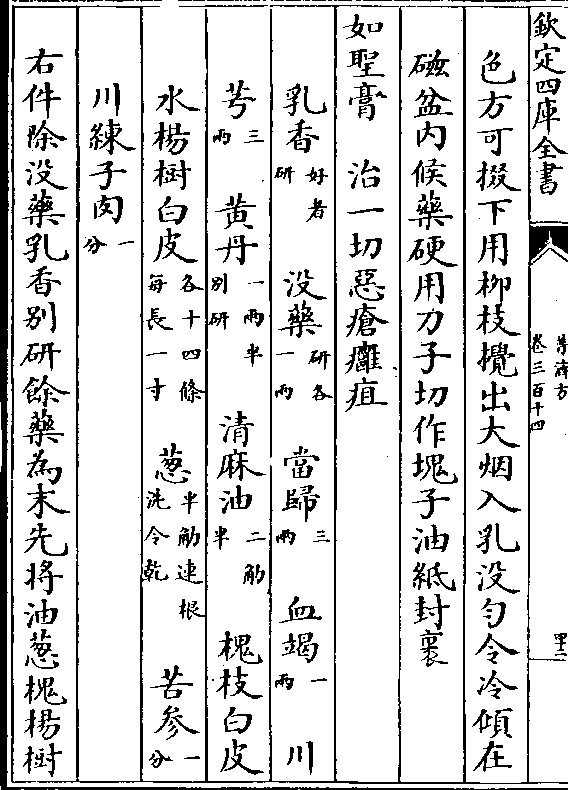 欽定四庫全書
普濟方
卷三百十四
色方可掇下用柳枝攪出大烟入乳没勻令冷傾在
磁盆内候藥硬用刀子切作塊子油紙封裹
如聖膏　治一切惡瘡癰疽
乳香好者研　没藥研各一兩　當歸三兩　血竭一兩　川
芎三兩　黄丹一兩半别研　清麻油二觔半　槐枝白皮
水楊樹白皮各十四條每長一寸　葱半觔連根洗令乾　苦参一分
川練子肉一分
右件除没藥乳香别研餘藥為末先將油葱槐楊樹